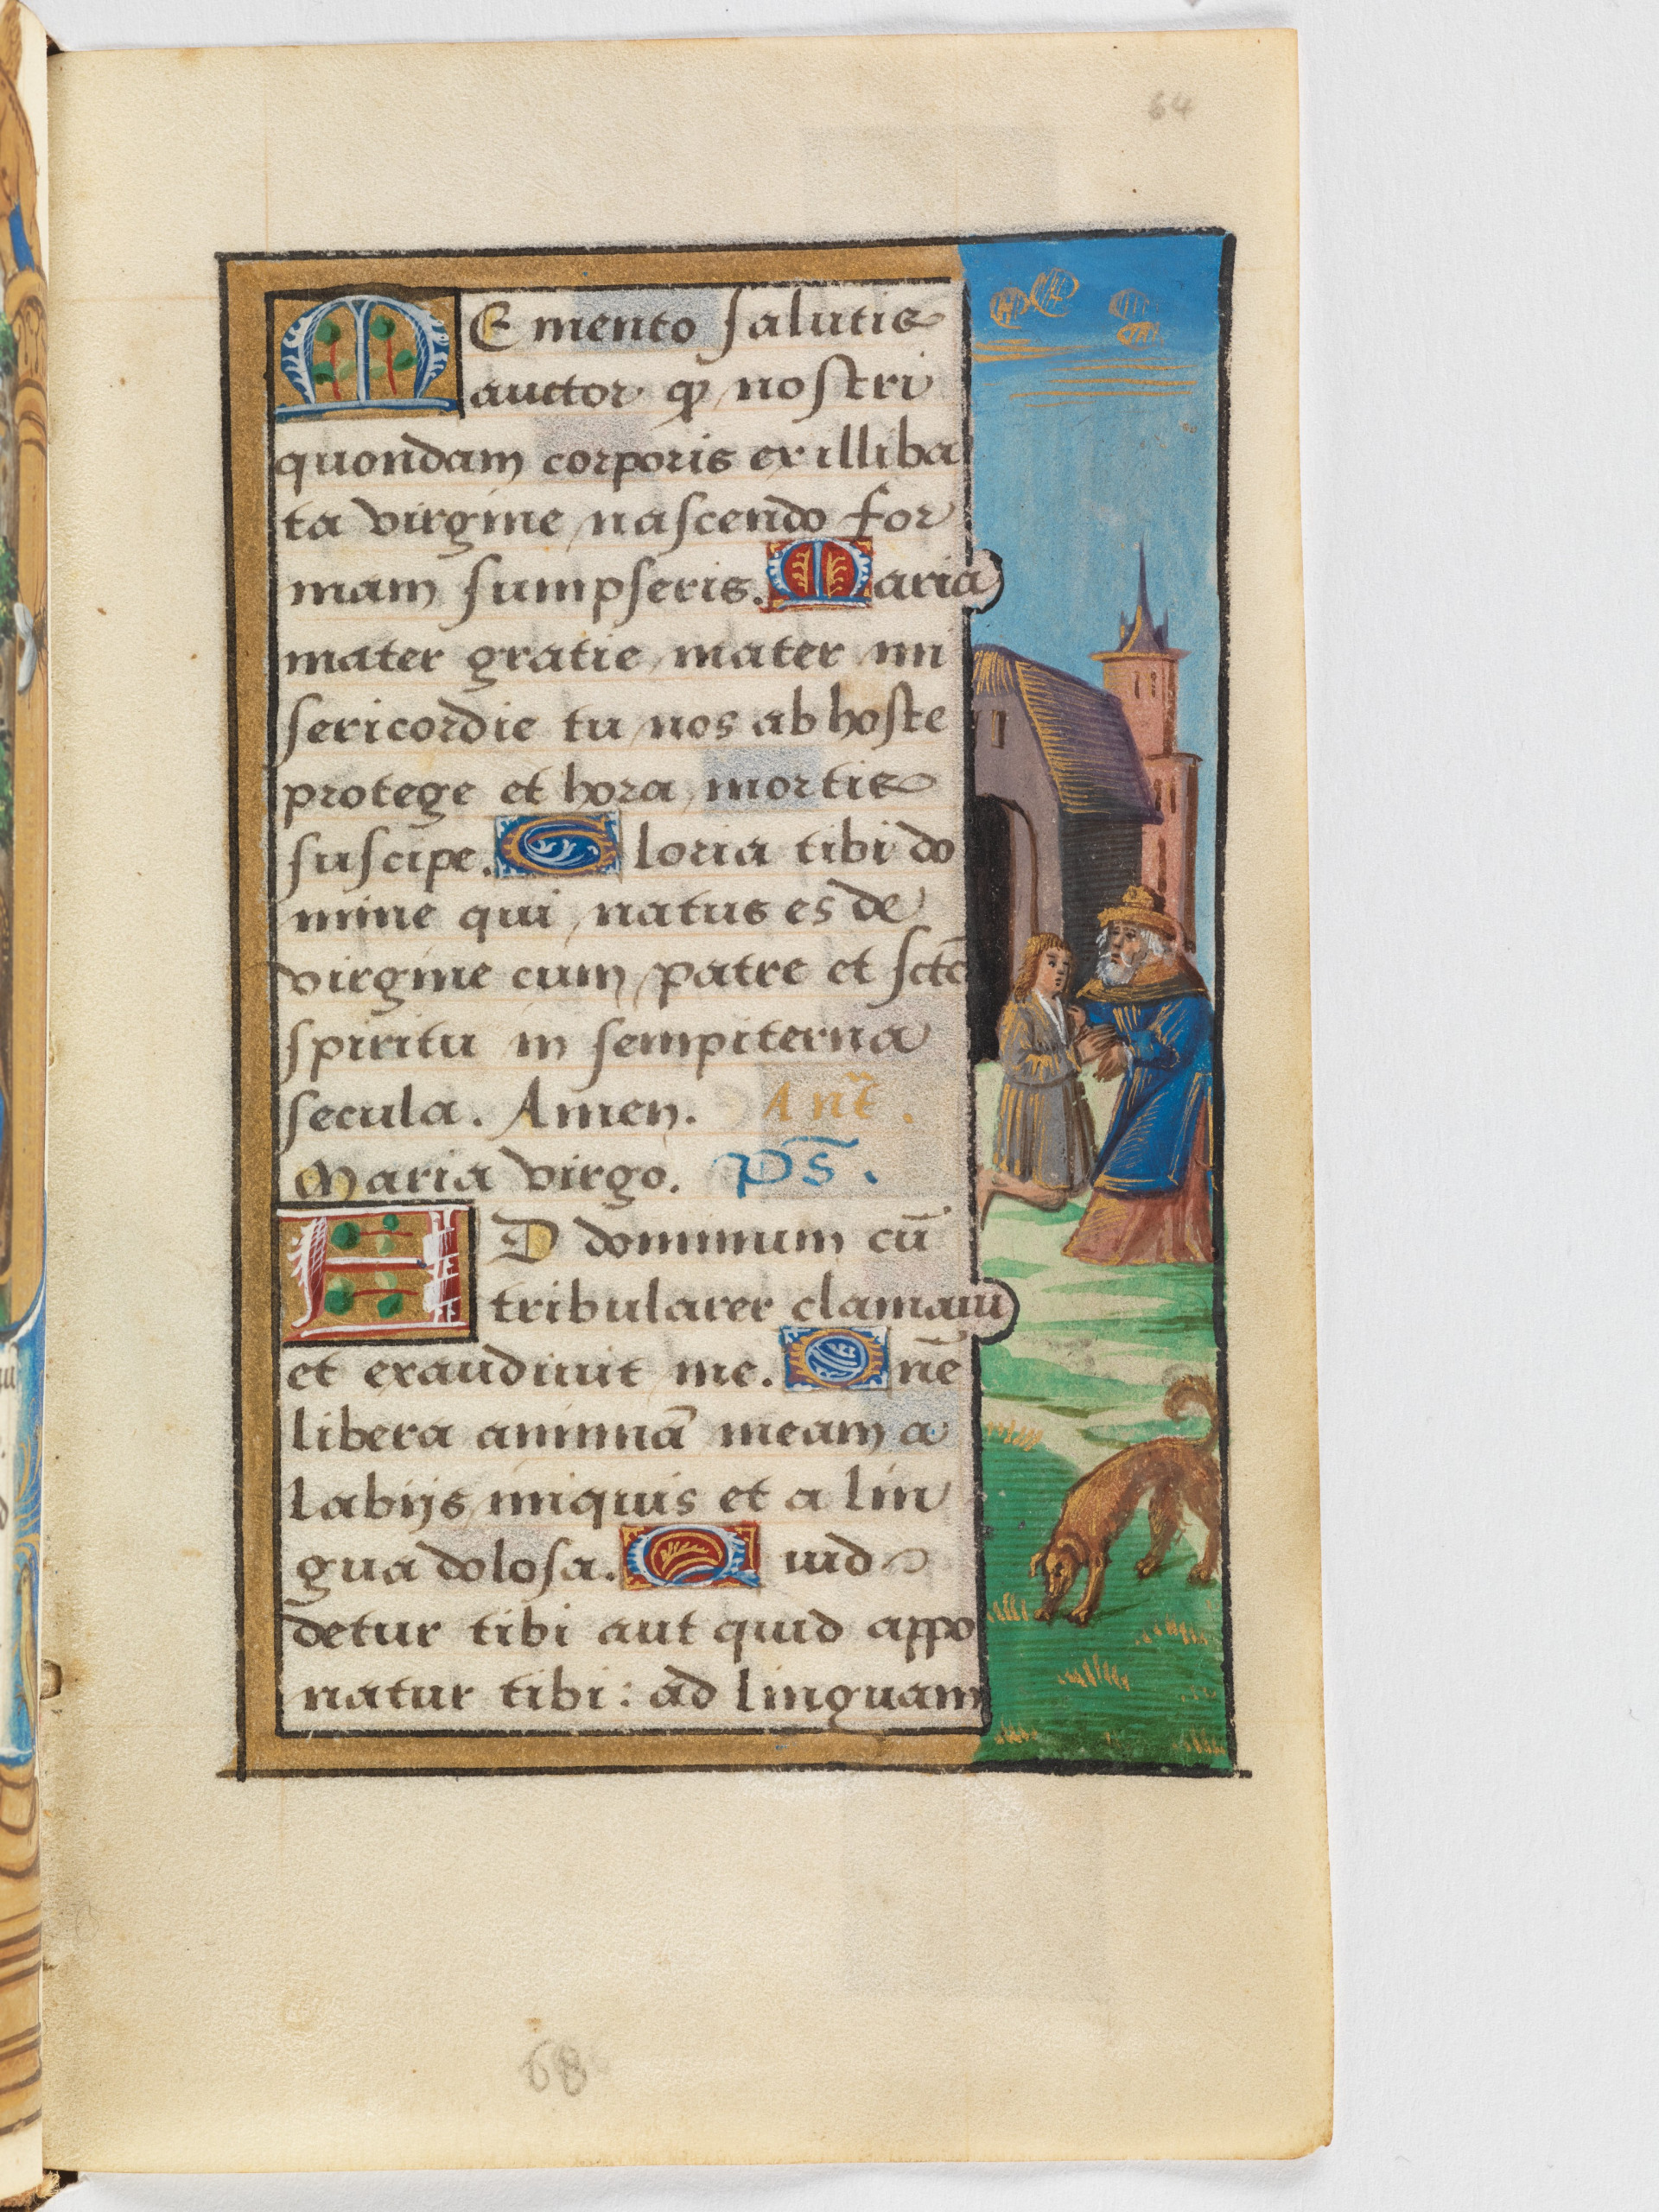 64
MEmento salutis
auctor qꝫ nostri
quondam corporis ex illiba
ta virgine nascendo for
mam sumpseris. Maria
mater gratie mater mi
sericordie tu nos ab hoste
protege et hora mortis
suscipe. Gloria tibi do
mine qui natus es de
virgine cum patre et sctō
spiritu in sempiterna
secula. Amen. Añt.
Maria virgo. ps̄.
AD dominum cū
tribularer clamaui
et exaudiuit me. Dñe
libera animā meam a
labijs iniquis et a lin
gua dolosa. Quid
detur tibi aut quid appo
natur tibi: ad linguam
68